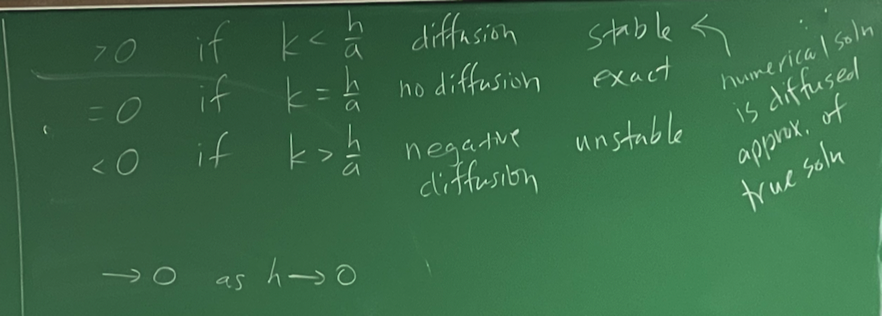 >0 if k < h/a diffusion stable ↖
=0 if k = h/a no diffusion exact
<0 if k > h/a negative diffusion unstable
numerical soln
is diffused
approx. of
true soln
→ 0 as h → 0